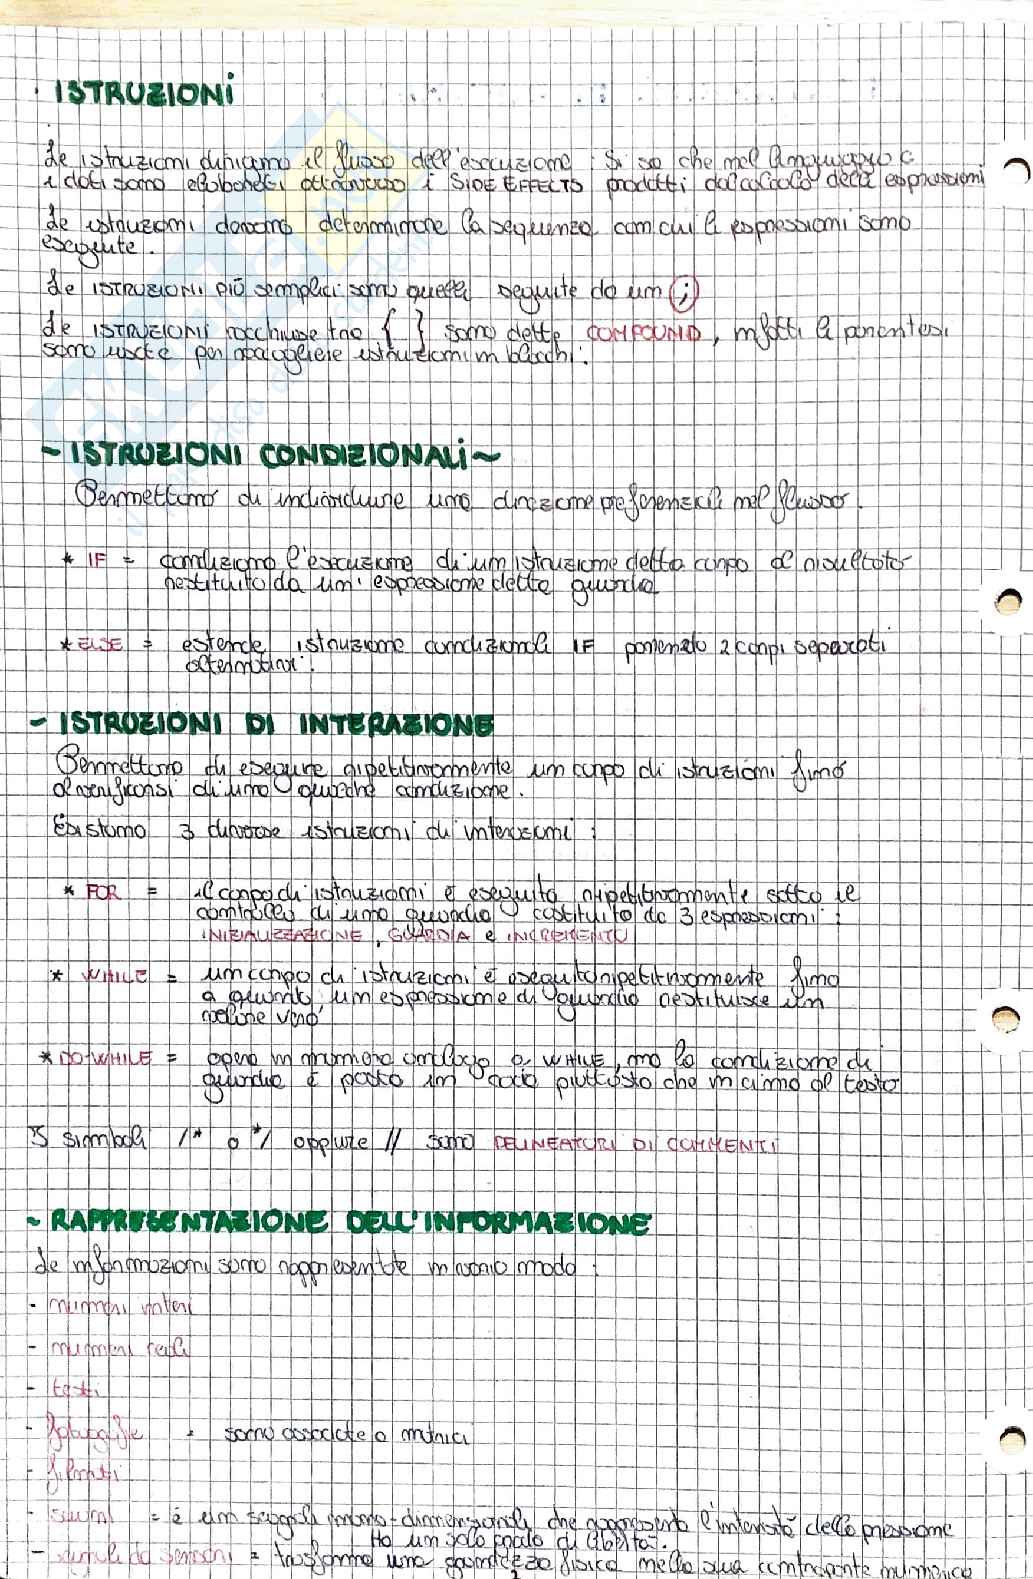 · ISTRUZIONI
Le istruzioni dirigono il flusso dell'esecuzione. Si sa che nel linguaggio C
i dati sono elaborati attraverso i SIDE EFFECTS prodotti dal calcolo delle espressioni
Le istruzioni dovranno determinare la sequenza con cui le espressioni sono
eseguite.
Le ISTRUZIONI PIÙ semplici sono quelle seguite da un ;
Le ISTRUZIONI racchiuse tra { } sono dette COMPOUND, infatti le parentesi
sono usate per raccogliere istruzioni in blocchi.
~ ISTRUZIONI CONDIZIONALI ~
Permettono di individuare una direzione preferenziale nel flusso.
* IF = condiziona l'esecuzione di un istruzione detta corpo al risultato
restituito da un'espressione detta guardia
* ELSE = estende istruzione condizionale IF ponendo 2 corpi separati
alternativi.
- ISTRUZIONI DI INTERAZIONE
Permettono di eseguire ripetitivamente un corpo di istruzioni fino
al verificarsi di una qualche condizione.
Esistono 3 diverse istruzioni di interazioni:
* FOR = il corpo di istruzioni è eseguito ripetitivamente sotto il
controllo di una guardia costituito da 3 espressioni:
INIZIALIZZAZIONE, GUARDIA e INCREMENTO
* WHILE = un corpo di istruzioni è eseguito ripetitivamente fino
a quando un espressione di guardia restituisce un
valore vero
* DO-WHILE = opera in maniera analoga a WHILE, ma la condizione di
guardia è posta in coda piuttosto che in cima al testo
I simboli /* o */ oppure // sono DELINEATORI DI COMMENTI
~ RAPPRESENTAZIONE DELL'INFORMAZIONE
Le informazioni sono rappresentate in vario modo:
- numeri interi
- numeri reali
- testi
- fotografie = sono associate a matrici
- filmati
- suoni = è un segnale mono-dimensionale che rappresenta l'intensità della pressione
Ha un solo grado di libertà.
- segnali da sensori = trasforma una grandezza fisica nella sua controparte numerica